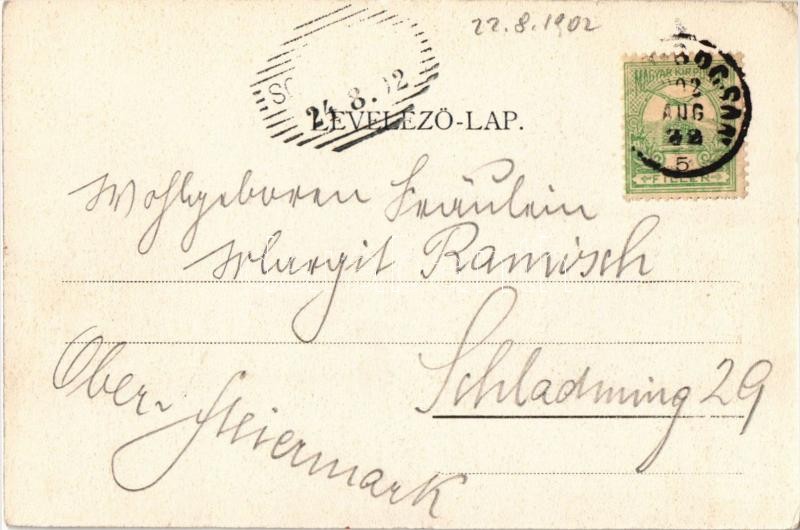 22.8.1902
MAGYAR KIR. POSTA
902
AUG
22
5
FILLÉR
24.8.02
LEVELEZŐ-LAP.
Wohlgeboren Fräulein
Margit Ramisch
Schladming 29
Ober-Steiermark